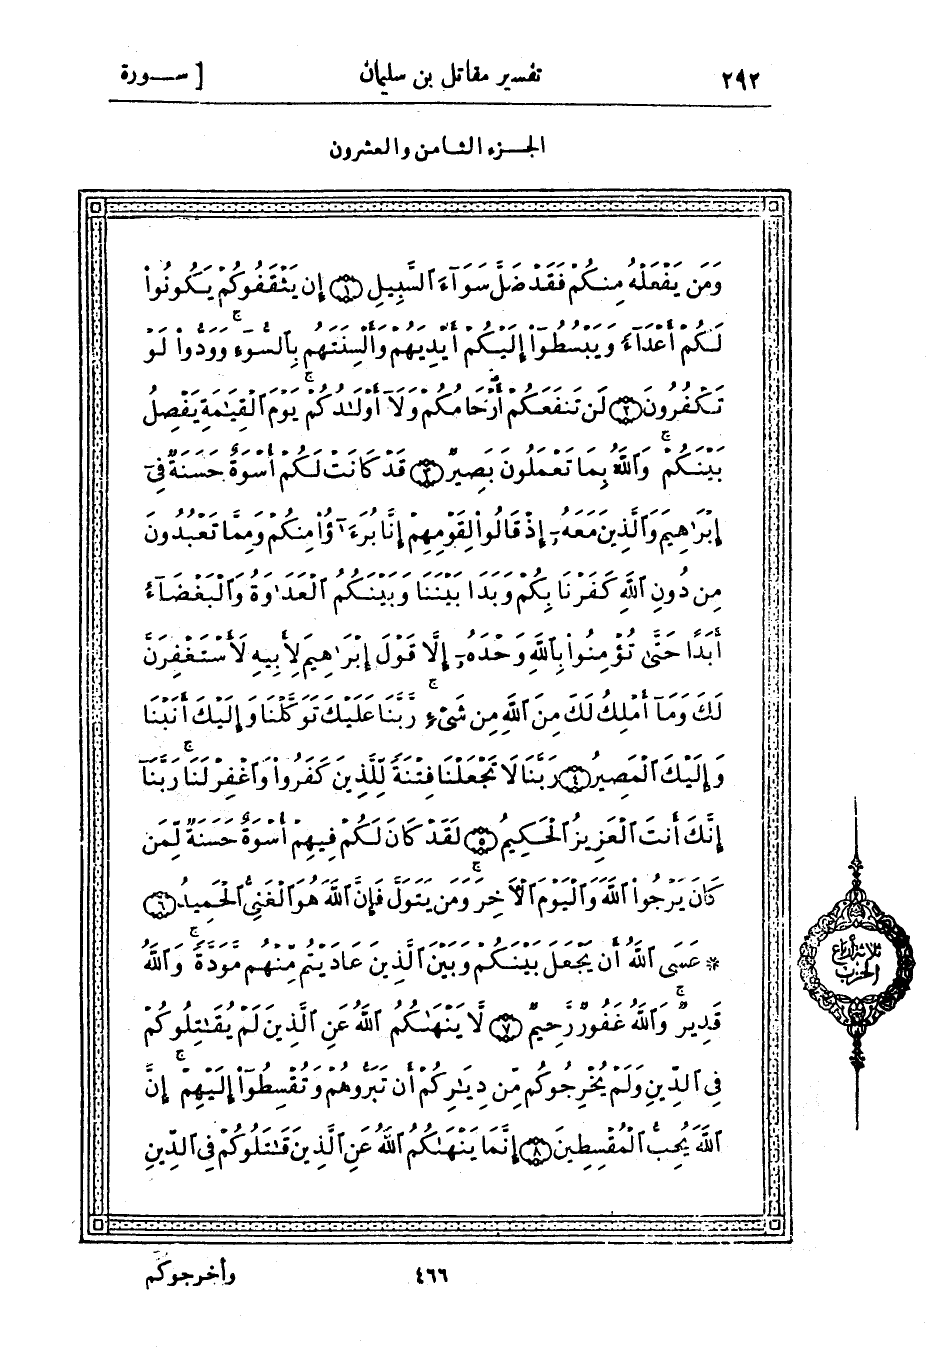 ٢٩٢ تفسير مقاتل بن سليمان [ ســورة
الجــزء الثامن والعشرون
وَمَن يَفْعَلْهُ مِنكُمْ فَقَدْ ضَلَّ سَوَآءَ ٱلسَّبِيلِ ۝١ إِن يَثْقَفُوكُمْ يَكُونُوا۟
لَكُمْ أَعْدَآءً وَيَبْسُطُوٓا۟ إِلَيْكُمْ أَيْدِيَهُمْ وَأَلْسِنَتَهُم بِٱلسُّوٓءِ وَوَدُّوا۟ لَوْ
تَكْفُرُونَ ۝٢ لَن تَنفَعَكُمْ أَرْحَامُكُمْ وَلَآ أَوْلَٰدُكُمْ ۚ يَوْمَ ٱلْقِيَٰمَةِ يَفْصِلُ
بَيْنَكُمْ ۚ وَٱللَّهُ بِمَا تَعْمَلُونَ بَصِيرٌ ۝٣ قَدْ كَانَتْ لَكُمْ أُسْوَةٌ حَسَنَةٌ فِىٓ
إِبْرَٰهِيمَ وَٱلَّذِينَ مَعَهُۥٓ إِذْ قَالُوا۟ لِقَوْمِهِمْ إِنَّا بُرَءَٰٓؤُا۟ مِنكُمْ وَمِمَّا تَعْبُدُونَ
مِن دُونِ ٱللَّهِ كَفَرْنَا بِكُمْ وَبَدَا بَيْنَنَا وَبَيْنَكُمُ ٱلْعَدَٰوَةُ وَٱلْبَغْضَآءُ
أَبَدًا حَتَّىٰ تُؤْمِنُوا۟ بِٱللَّهِ وَحْدَهُۥٓ إِلَّا قَوْلَ إِبْرَٰهِيمَ لِأَبِيهِ لَأَسْتَغْفِرَنَّ
لَكَ وَمَآ أَمْلِكُ لَكَ مِنَ ٱللَّهِ مِن شَىْءٍ ۚ رَّبَّنَا عَلَيْكَ تَوَكَّلْنَا وَإِلَيْكَ أَنَبْنَا
وَإِلَيْكَ ٱلْمَصِيرُ ۝٤ رَبَّنَا لَا تَجْعَلْنَا فِتْنَةً لِّلَّذِينَ كَفَرُوا۟ وَٱغْفِرْ لَنَا ۚ رَبَّنَآ
إِنَّكَ أَنتَ ٱلْعَزِيزُ ٱلْحَكِيمُ ۝٥ لَقَدْ كَانَ لَكُمْ فِيهِمْ أُسْوَةٌ حَسَنَةٌ لِّمَن
كَانَ يَرْجُوا۟ ٱللَّهَ وَٱلْيَوْمَ ٱلْأَخِرَ ۚ وَمَن يَتَوَلَّ فَإِنَّ ٱللَّهَ هُوَ ٱلْغَنِىُّ ٱلْحَمِيدُ ۝٦
* عَسَى ٱللَّهُ أَن يَجْعَلَ بَيْنَكُمْ وَبَيْنَ ٱلَّذِينَ عَادَيْتُم مِّنْهُم مَّوَدَّةً ۚ وَٱللَّهُ
قَدِيرٌ ۚ وَٱللَّهُ غَفُورٌ رَّحِيمٌ ۝٧ لَّا يَنْهَىٰكُمُ ٱللَّهُ عَنِ ٱلَّذِينَ لَمْ يُقَٰتِلُوكُمْ
فِى ٱلدِّينِ وَلَمْ يُخْرِجُوكُم مِّن دِيَٰرِكُمْ أَن تَبَرُّوهُمْ وَتُقْسِطُوٓا۟ إِلَيْهِمْ ۚ إِنَّ
ٱللَّهَ يُحِبُّ ٱلْمُقْسِطِينَ ۝٨ إِنَّمَا يَنْهَىٰكُمُ ٱللَّهُ عَنِ ٱلَّذِينَ قَٰتَلُوكُمْ فِى ٱلدِّينِ
ثلاثة أرباع
الحزب
٤٦٦ وأخرجوكم